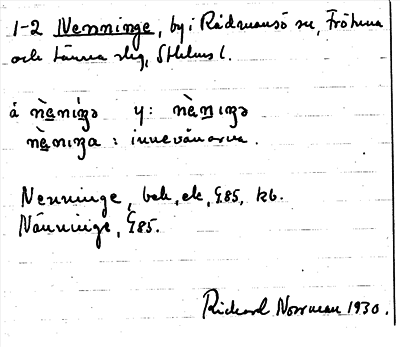 1-2 Nenninge, by i Rådmansö sn, Frötuna
och Länna slg, Sthlms l.
å nὲnɩŋə y: nὲnɩŋə
nὲnɩŋa : innevånarna.
Nenninge, bok, ek, G85, kb.
Nänninge, G85.
Rickard Norrman 1930.